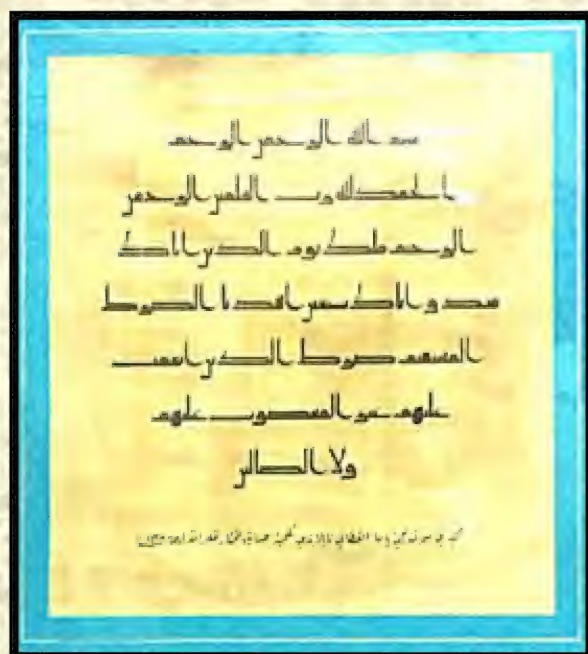 بسم الله الرحمن الرحيم
الحمد لله رب العلمين الرحمن
الرحيم ملك يوم الدين اياك
نعبد و اياك نستعين اهدنا الصرط
المستقيم صرط الذين انعمت
عليهم غير المغضوب عليهم
ولا الضالين